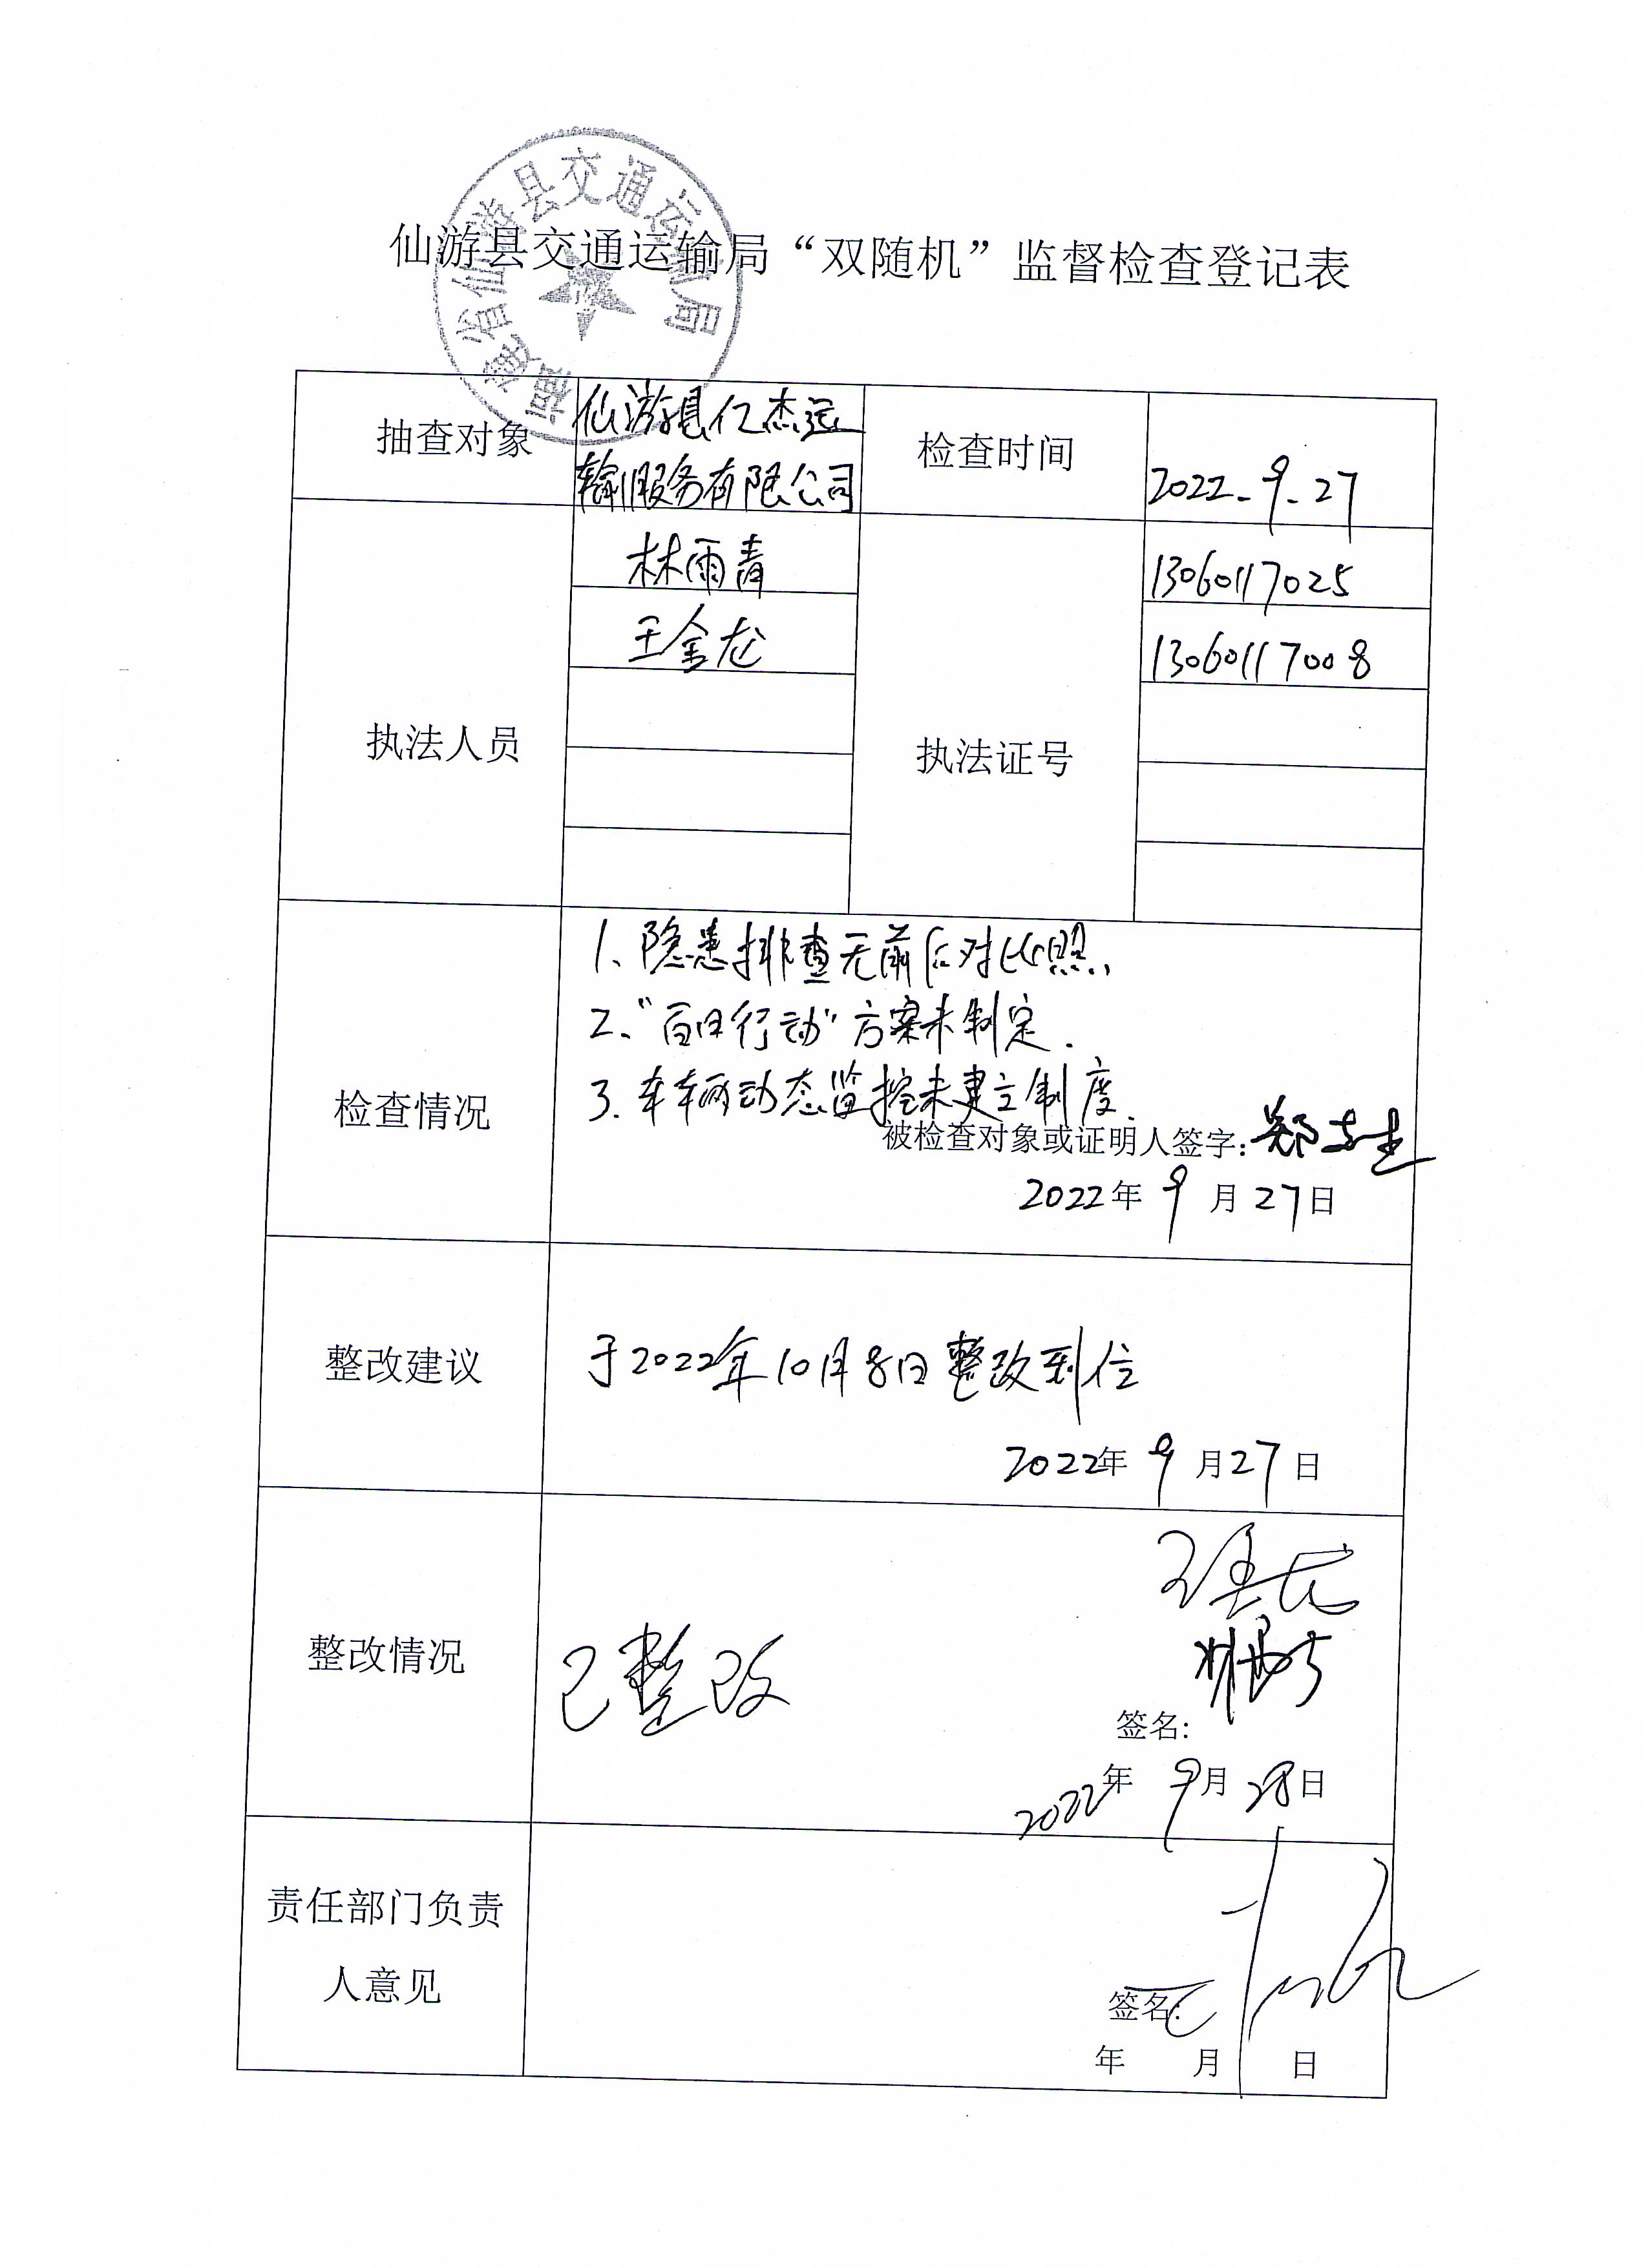 仙游县交通运输局“双随机”监督检查登记表
福建省仙游县交通运输局
抽查对象
仙游县仁杰运
输服务有限公司
检查时间
2022-9-27
执法人员
林雨青
王金龙
执法证号
13060117025
13060117008
检查情况
1、隐患排查无前后对比照.
2、“百日行动”方案未制定.
3.车辆动态监控未建立制度.
被检查对象或证明人签字:
2022年 9 月 27 日
整改建议
于2022年10月8日整改到位
2022年 9 月 27 日
整改情况
已整改
王金龙
签名:
2022年 9月 28日
责任部门负责
人意见
签名:
年 月 日